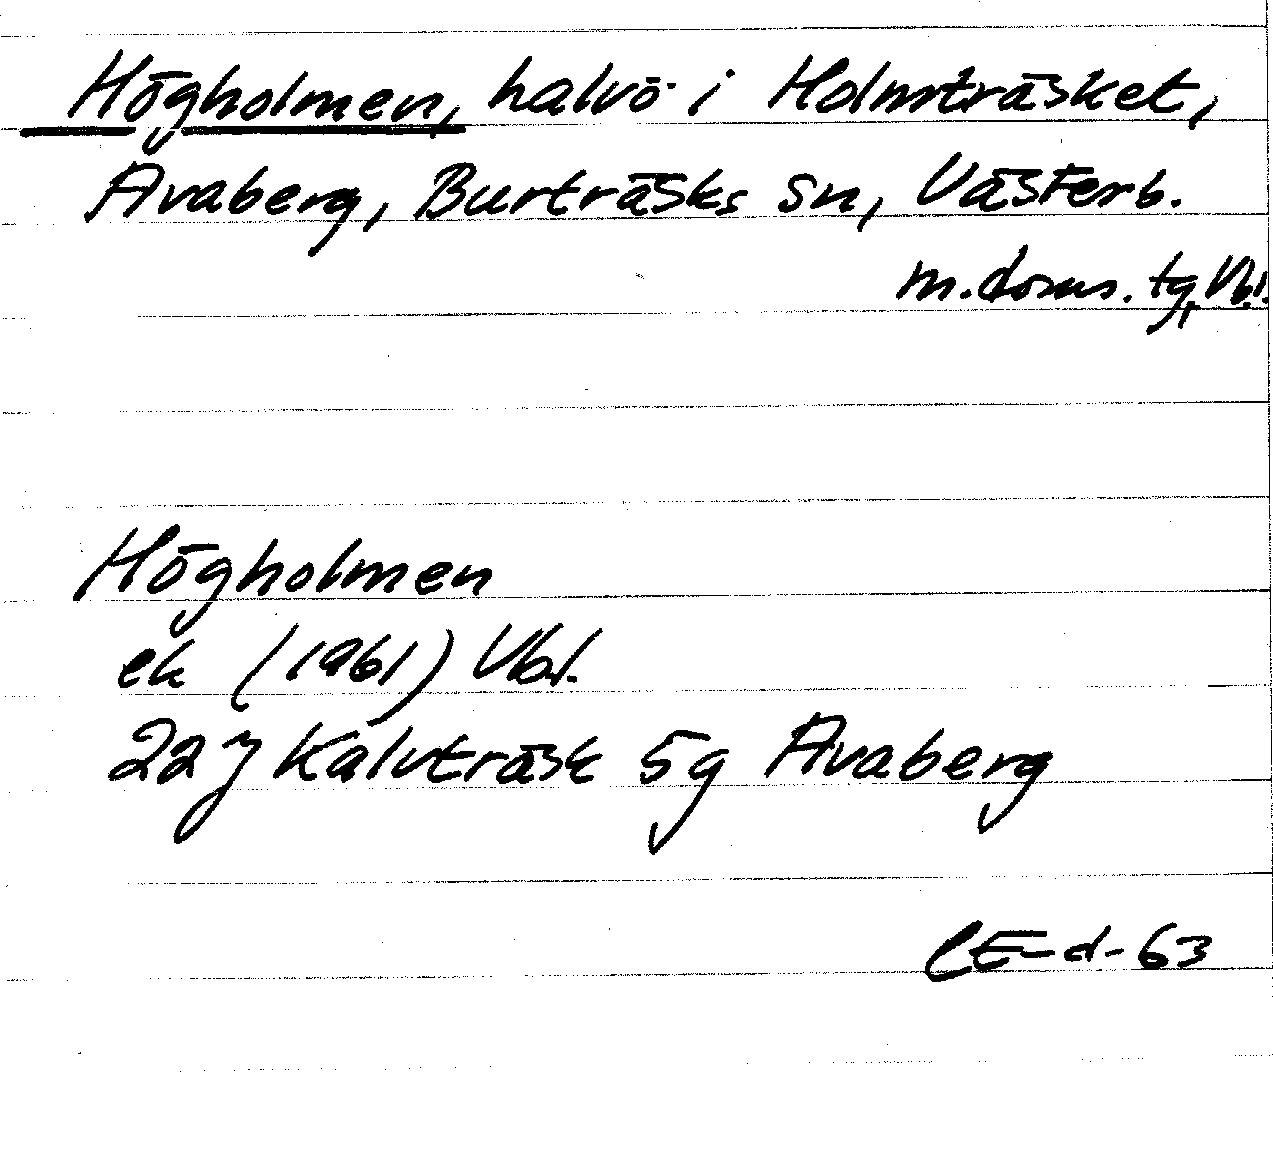 Högholmen, halvö i Holmträsket,
Avaberg, Burträsks sn, Västerb.
m. doms. tg, Vb.l.
Högholmen
ek (1961) Vbl.
22 J Kalvträsk 5g Avaberg
CE-d-63